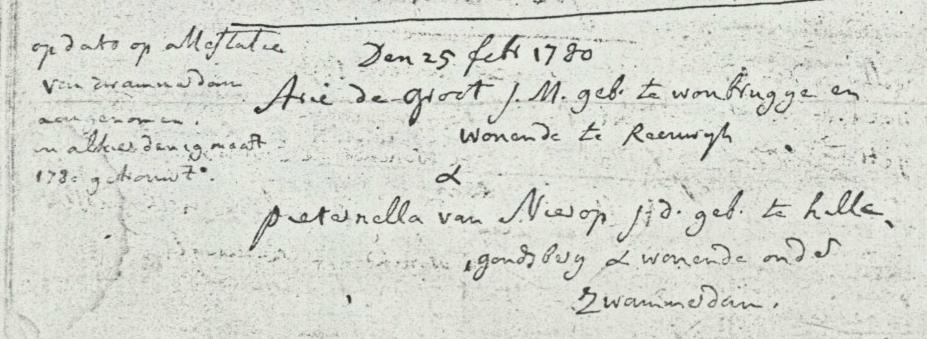 op dato op attestatie
van zwammerdam
aengenomen.
en alhier den 19 maart
1780 getrouwt.
Den 25 febr 1780
Arie de groot J. M. geb. te woubrugge en
wonende te Reeuwyk
&
pieternella van Nierop j. d. geb. te hille,
gondsberg & wonende onder
Zwammerdam.